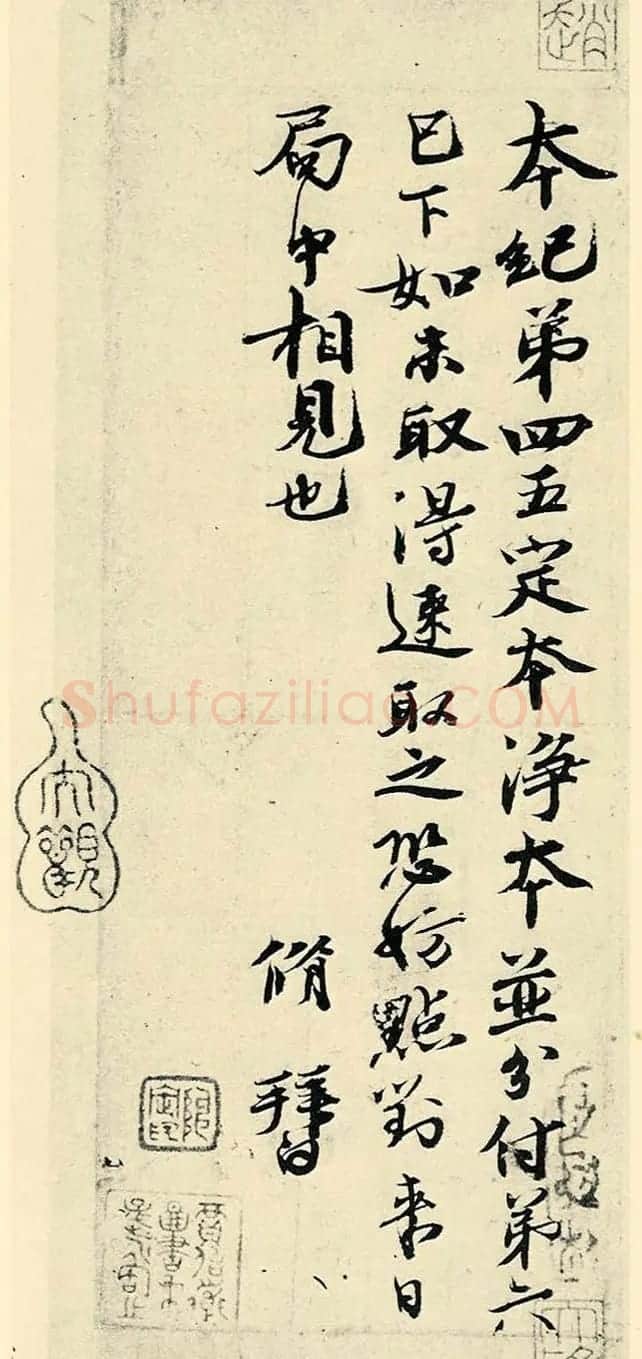 本紀第四五定本淨本並分付第六
已下如未取得速取之恐妨點對來日
局中相見也
脩 拜白
Shufaziliao.COM